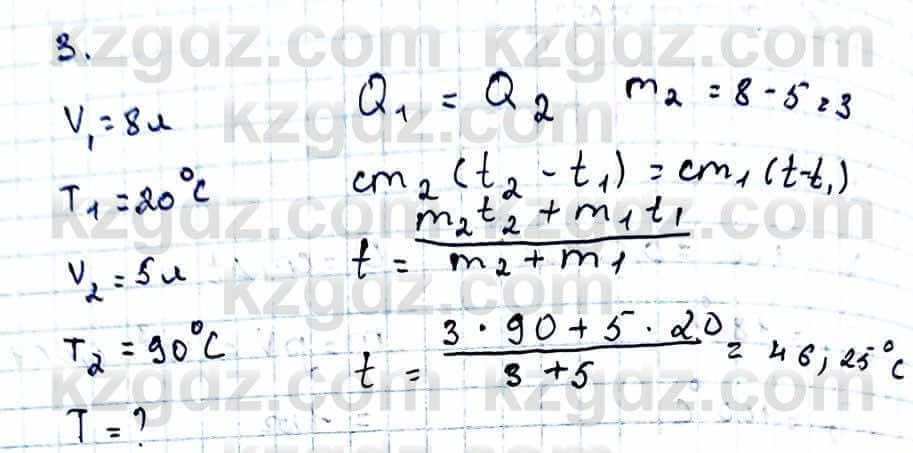 3.
V₁ = 8л
T₁ = 20°C
V₂ = 5л
T₂ = 90°C
T = ?
Q₁ = Q₂ m₂ = 8 - 5 = 3
cm₂ (t₂ - t₁) = cm₁ (t-t₁)
t = m₂t₂ + m₁t₁ / m₂ + m₁
t = 3 · 90 + 5 · 20 / 3 + 5 = 46,25°C
kzgdz.com
kzgdz.com
kzgdz.com
kzgdz.com
kzgdz.com
kzgdz.com
kzgdz.com
kzgdz.com